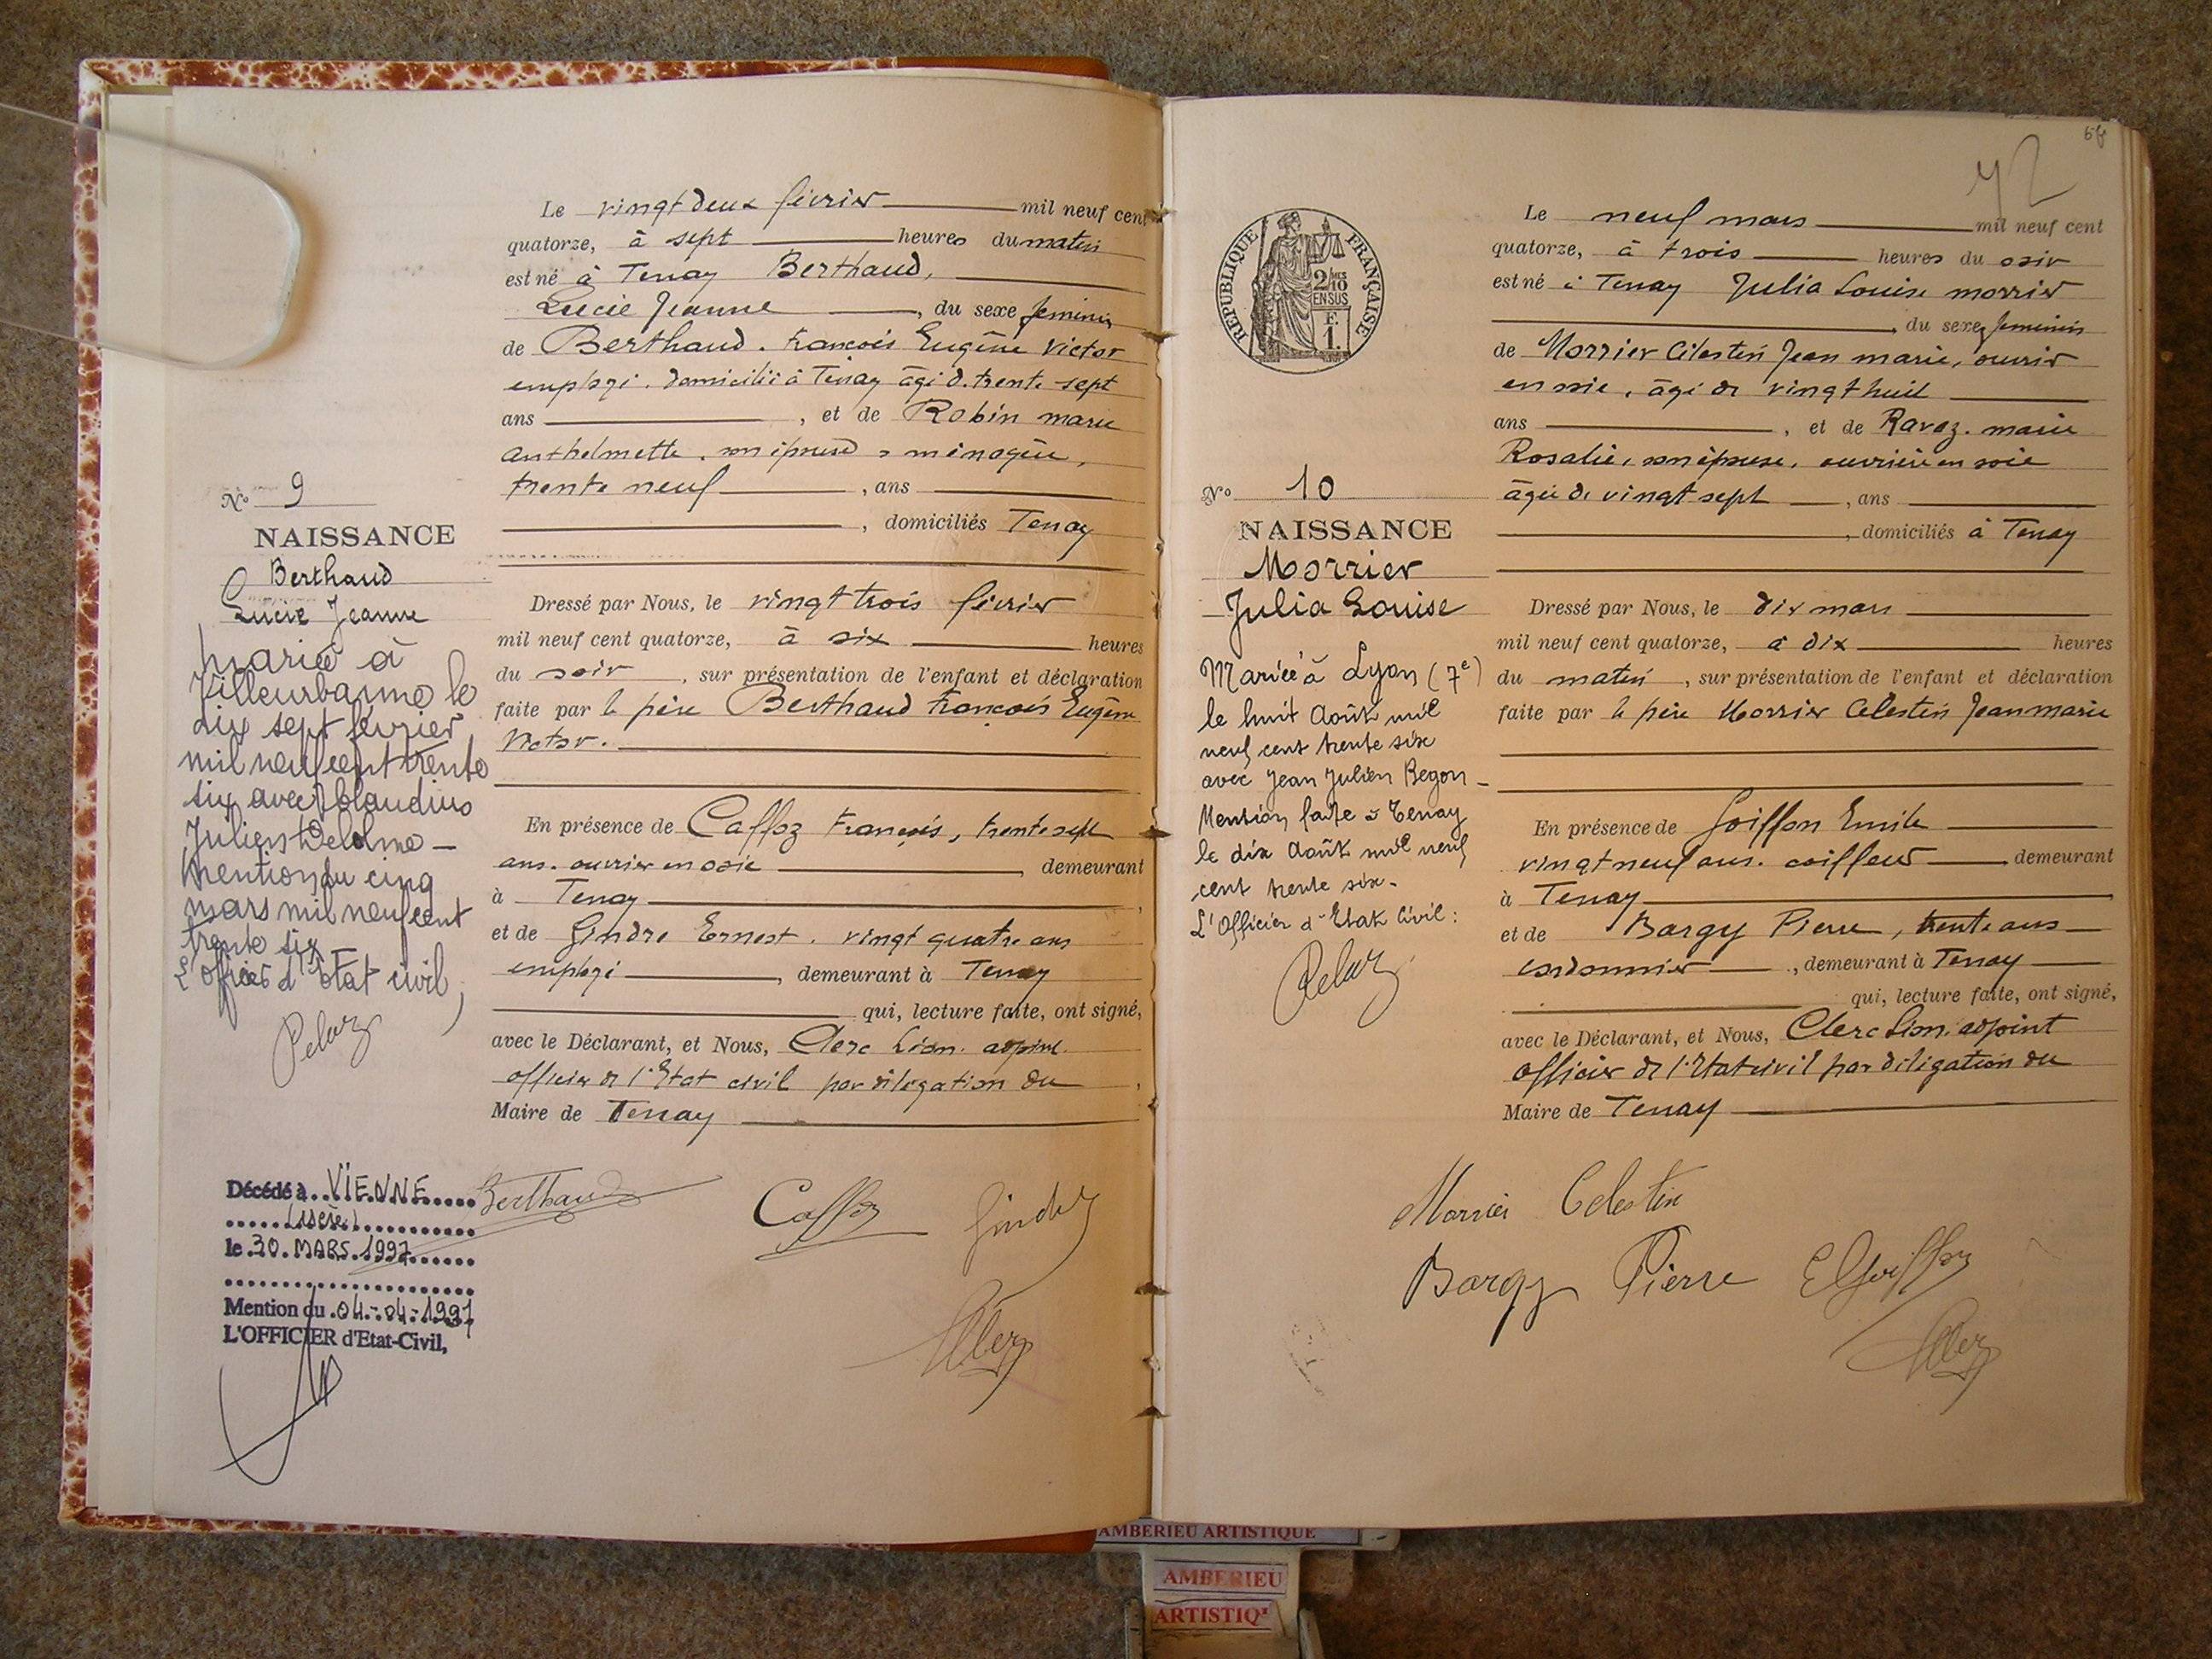 Le vingt deux février mil neuf cent
quatorze, à sept heures du matin
est né à Tenay Berthaud,
Lucie Jeanne, du sexe feminin
de Berthaud. François Eugène Victor
employé. domicilié à Tenay âgé de trente sept
ans, et de Robin marie
Anthelmette, son épouse, ménagère,
trente neuf, ans
, domiciliés Tenay
Nº 9
NAISSANCE
Berthaud
Lucie Jeanne
Mariée à
Villeurbanne le
dix sept février
mil neuf cent trente
six avec Claudius
Julien Delolme —
Mention du cinq
mars mil neuf cent
trente six —
L'Officier d'état civil,
Pelaz
Dressé par Nous, le vingt trois février
mil neuf cent quatorze, à six heures
du soir, sur présentation de l'enfant et déclaration
faite par le père Berthaud François Eugène
Victor.
En présence de Caffoz François, trente sept
ans. ouvrier en soie, demeurant
à Tenay,
et de Gindre Ernest. vingt quatre ans
employé, demeurant à Tenay
qui, lecture faite, ont signé,
avec le Déclarant, et Nous, Clerc Léon. adjoint
officier de l'Etat civil par délégation du
Maire de Tenay
Décédé à VIENNE
(Isère)
le 30. MARS. 1997
Mention du 04-04-1997
L'OFFICIER d'Etat-Civil,
Berthaud
Caffoz Gindre
Clerc
68
72
RÉPUBLIQUE FRANÇAISE
2/10
EN SUS
F.
1.
Le neuf mars mil neuf cent
quatorze, à trois heures du soir
est né à Tenay Julia Louise Morrier
, du sexe feminin
de Morrier Célestin Jean marie, ouvrier
en soie, âgé de vingt huit
ans, et de Ravaz. marie
Rosalie, son épouse, ouvrière en soie
âgée de vingt sept, ans
, domiciliés à Tenay
Nº 10
NAISSANCE
Morrier
Julia Louise
Mariée à Lyon (7e)
le huit Août mil
neuf cent trente six
avec Jean Julien Begon —
Mention faite à Tenay
le dix Août mil neuf
cent trente six.
L'Officier d'Etat Civil :
Pelaz
Dressé par Nous, le dix mars
mil neuf cent quatorze, à dix heures
du matin, sur présentation de l'enfant et déclaration
faite par le père Morrier Célestin Jean marie
En présence de Goiffon Emile
vingt neuf ans. coiffeur demeurant
à Tenay
et de Bargy Pierre, trente ans
cordonnier, demeurant à Tenay
qui, lecture faite, ont signé,
avec le Déclarant, et Nous, Clerc Léon. adjoint
officier de l'Etat civil par délégation du
Maire de Tenay
Morrier Célestin
Bargy Pierre E Goiffon
Clerc
AMBERIEU ARTISTIQUE
AMBERIEU
ARTISTIQ